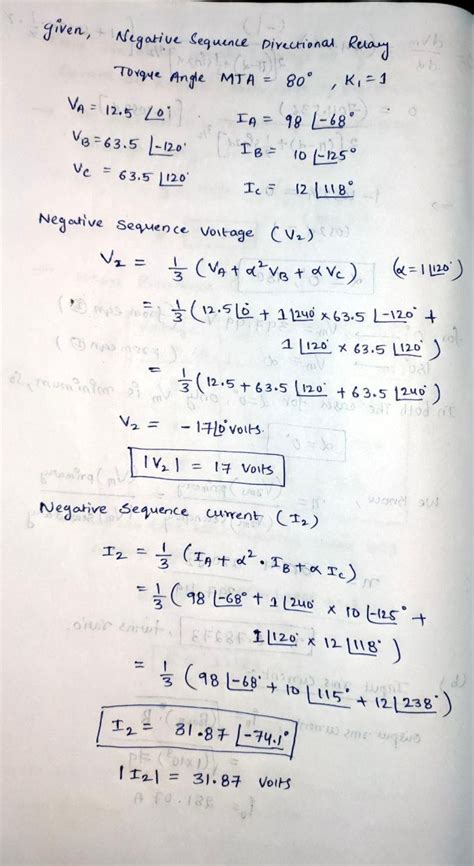 given, Negative Sequence Directional Relay
Torque Angle MTA = 80° , K₁ = 1
VA = 12.5 ∠0° IA = 98 ∠-68°
VB = 63.5 ∠-120° IB = 10 ∠-125°
VC = 63.5 ∠120° IC = 12 ∠118°
Negative Sequence Voltage (V₂)
V₂ = 1/3 (VA + α² VB + α VC) (α = 1∠120°)
= 1/3 (12.5 ∠0° + 1∠240° × 63.5 ∠-120° +
1∠120° × 63.5 ∠120°)
= 1/3 (12.5 + 63.5 ∠120° + 63.5 ∠240°)
V₂ = -17∠0° volts.
|V₂| = 17 volts
Negative Sequence current (I₂)
I₂ = 1/3 (IA + α² · IB + α IC)
= 1/3 (98 ∠-68° + 1∠240° × 10 ∠-125° +
1∠120° × 12 ∠118°)
= 1/3 (98 ∠-68° + 10 ∠115° + 12 ∠238°)
I₂ = 31.87 ∠-74.1°
|I₂| = 31.87 volts